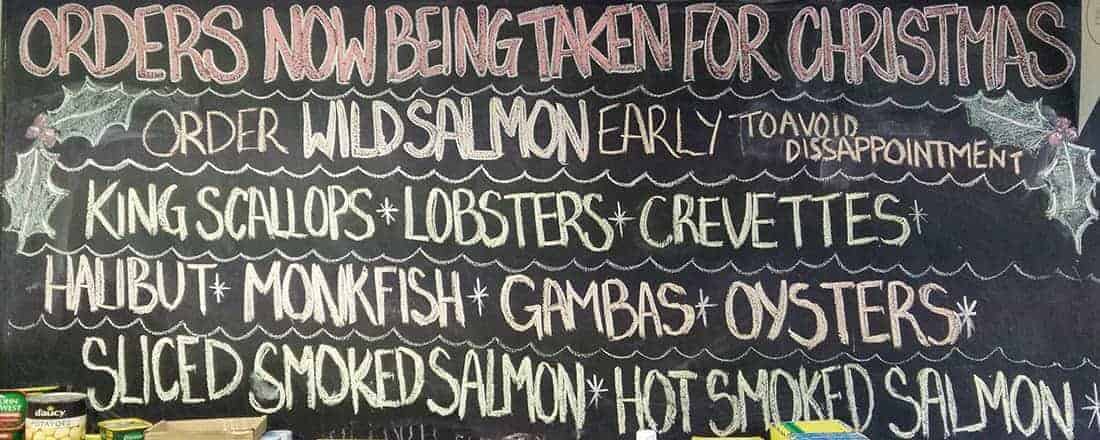 ORDERS NOW BEING TAKEN FOR CHRISTMAS
ORDER WILD SALMON EARLY TO AVOID
DISSAPPOINTMENT
KING SCALLOPS * LOBSTERS * CREVETTES *
HALIBUT * MONKFISH * GAMBAS * OYSTERS *
SLICED SMOKED SALMON * HOT SMOKED SALMON *
JOHN
WEST
d'aucy
POTATOES